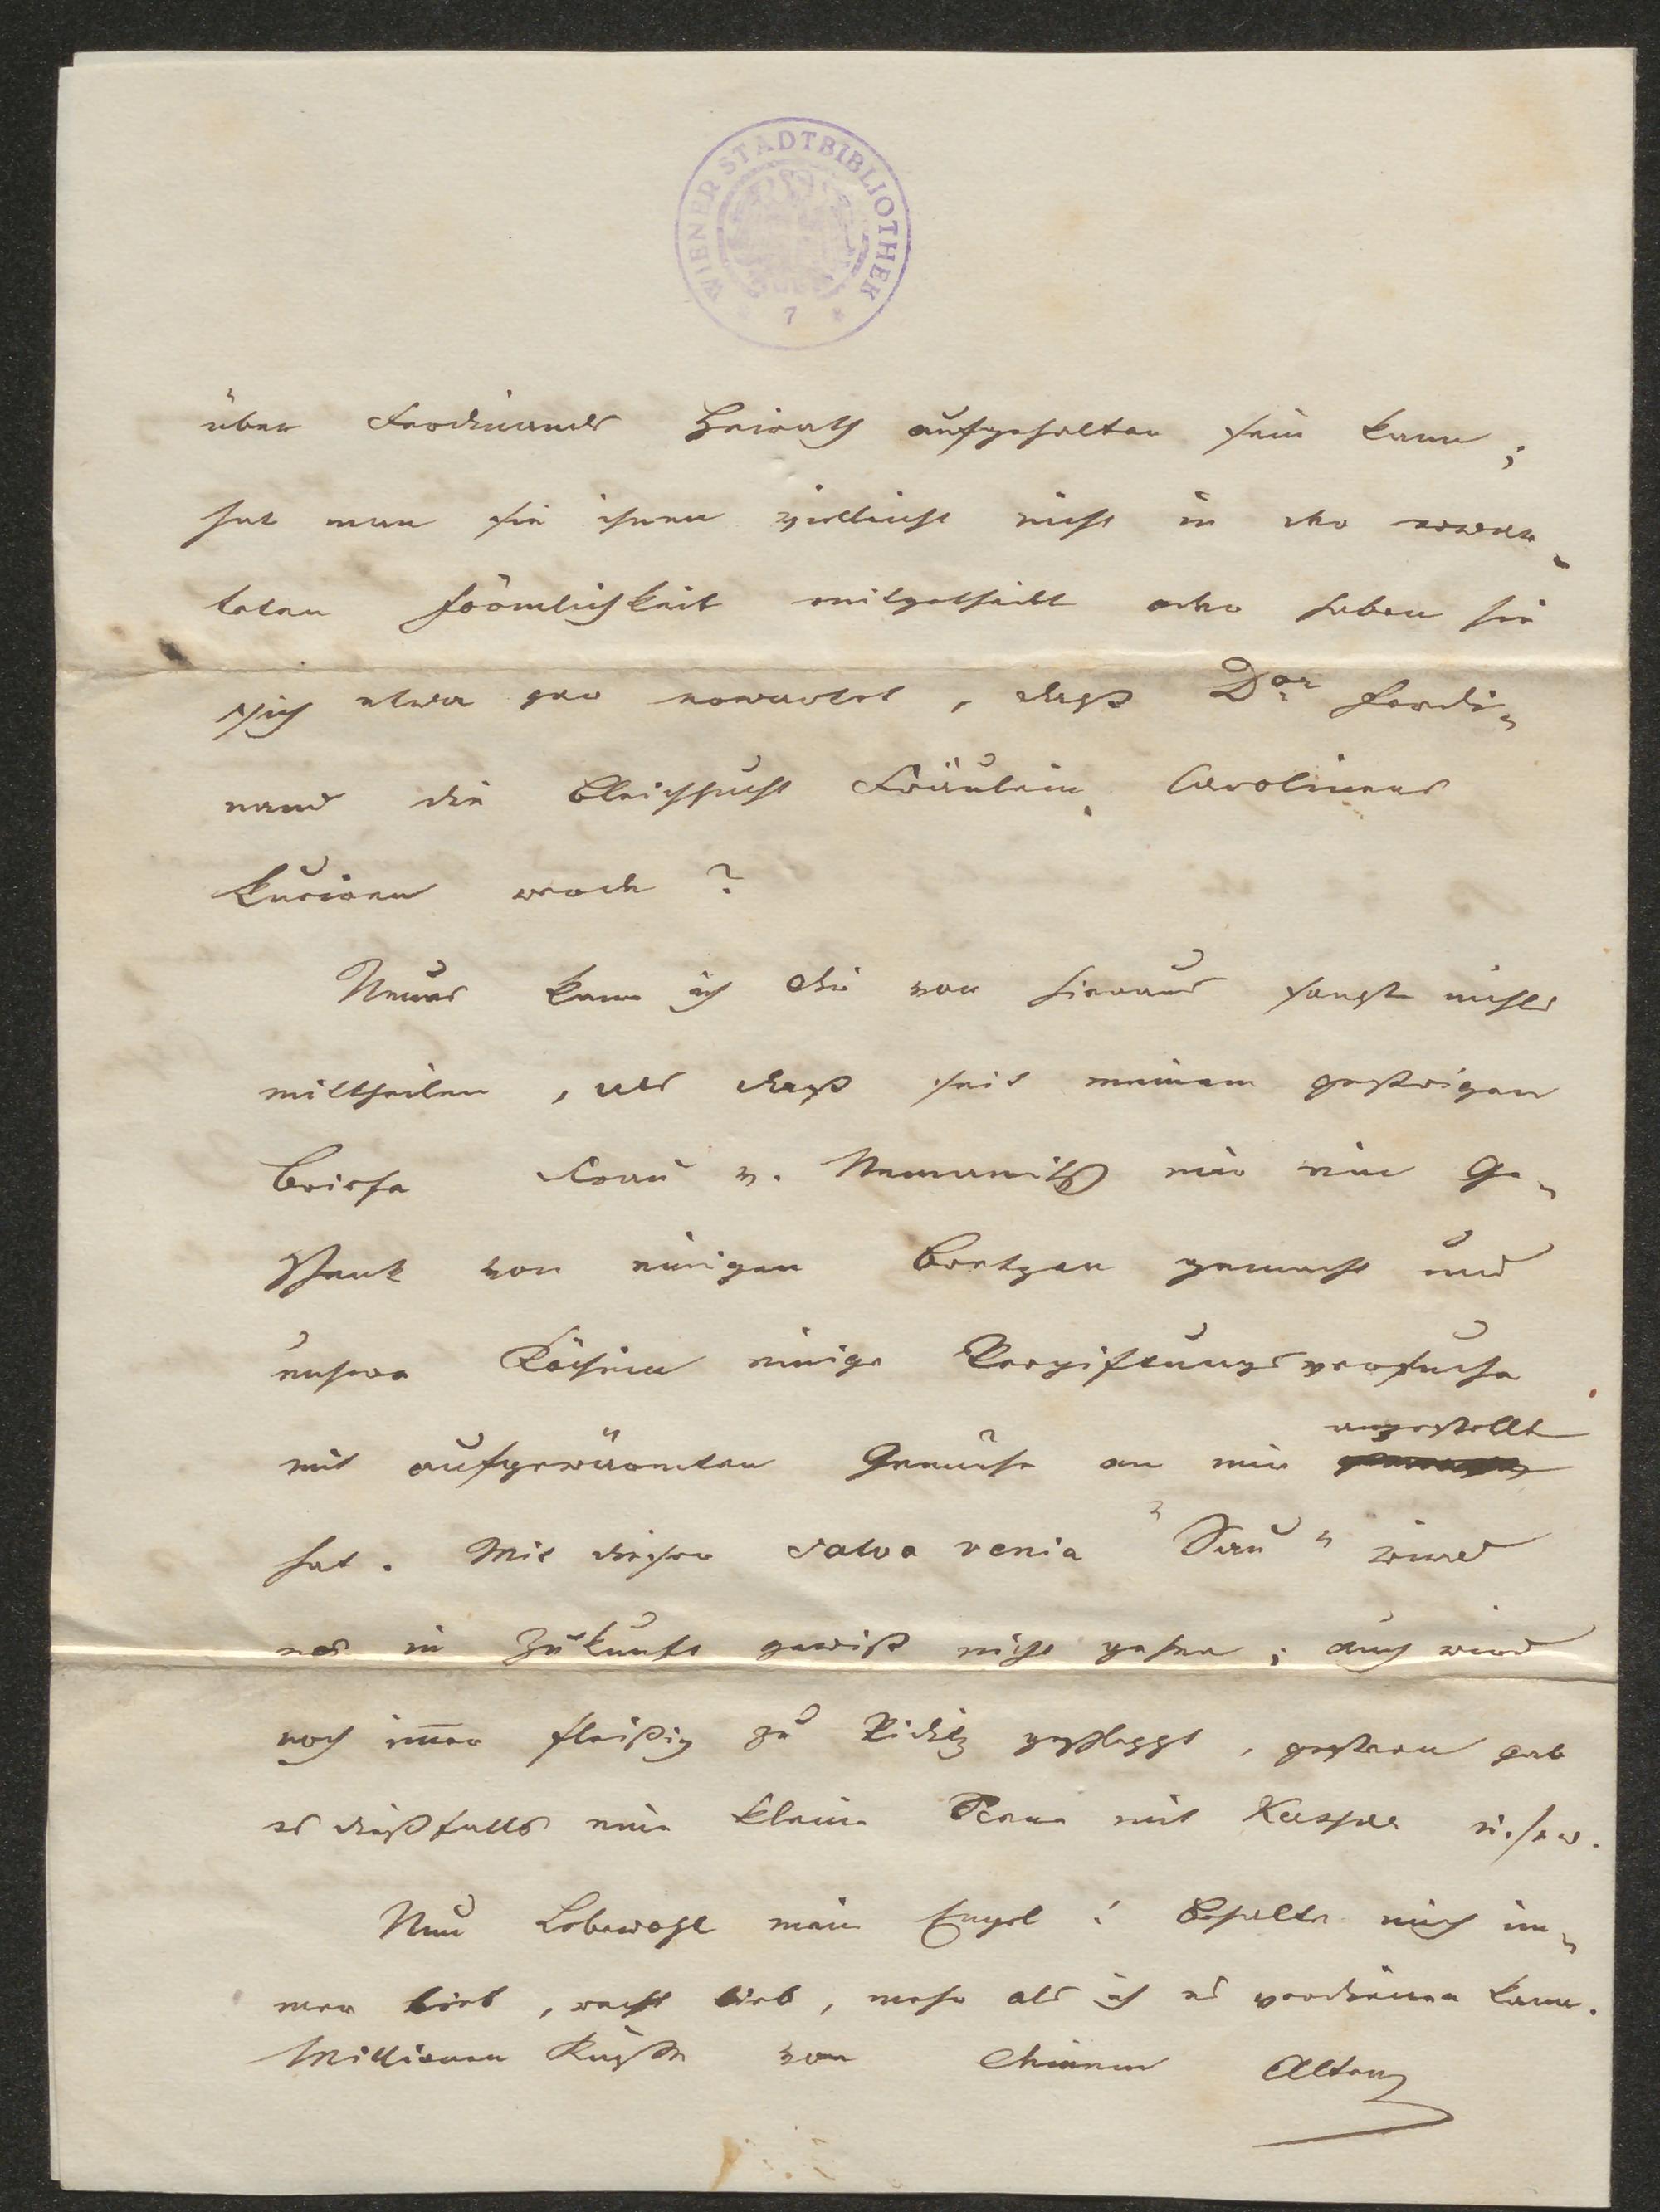 WIENER STADTBIBLIOTHEK
7
über Ferdinands Heirath aufgehalten sein kann;
hat man sie ihnen vielleicht nicht in der erwar-
teten Förmlichkeit mitgetheilt oder haben sie
sich etwa gar erwartet, daß Dor Ferdi-
nand die Bleichsucht Fräulein Carolinens
kuriren werde?
Neues kann ich Dir von hieraus sonst nichts
mittheilen, als daß seit meinem gestrigen
Briefe Frau v. Nemanitsch mir ein Ge-
schenk von einigen Bretzen gemacht und
unsere Köchinn einige Vergiftungsversuche
mit aufgewärmten Gemüse an mir angestellt
hat. Mit dieser salva venia "Sau" wird
es in Zukunft gewiß nicht gehen; auch wird
noch immer fleißig zu geschleppt, gestern gab
es dießfalls eine kleine Scene mit u.s.w.
Nun Lebewohl mein Engel! Behalte mich im-
mer lieb, recht lieb, mehr als ich es verdienen kann.
Millionen Küsse von Deinem Alten